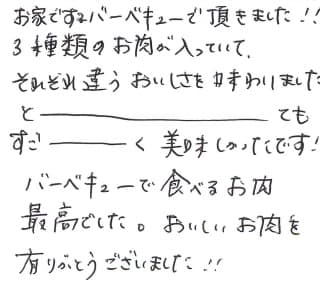 お家でするバーベキューで頂きました!!
3種類のお肉が入っていて、
それぞれ違うおいしさを味わいました
と――――――――ても
すご――――く美味しかったです!
バーベキューで食べるお肉
最高でした。おいしいお肉を
有りがとうございました!!